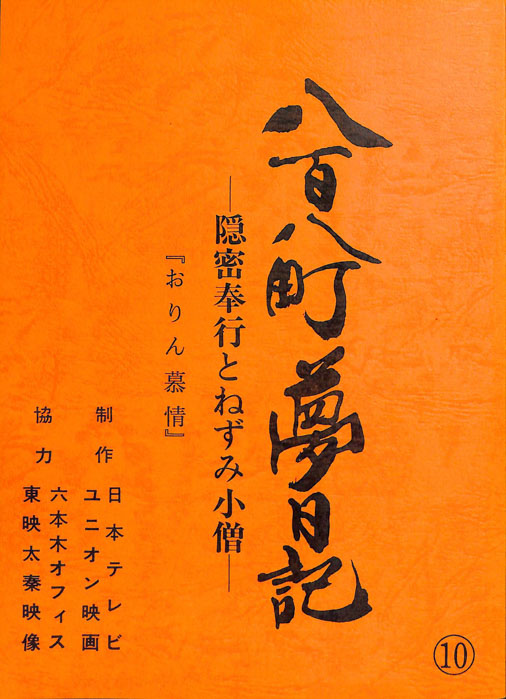 八百八町夢日記
―隠密奉行とねずみ小僧―
『おりん慕情』
制作
日本テレビ
ユニオン映画
協力
六本木オフィス
東映太秦映像
⑩